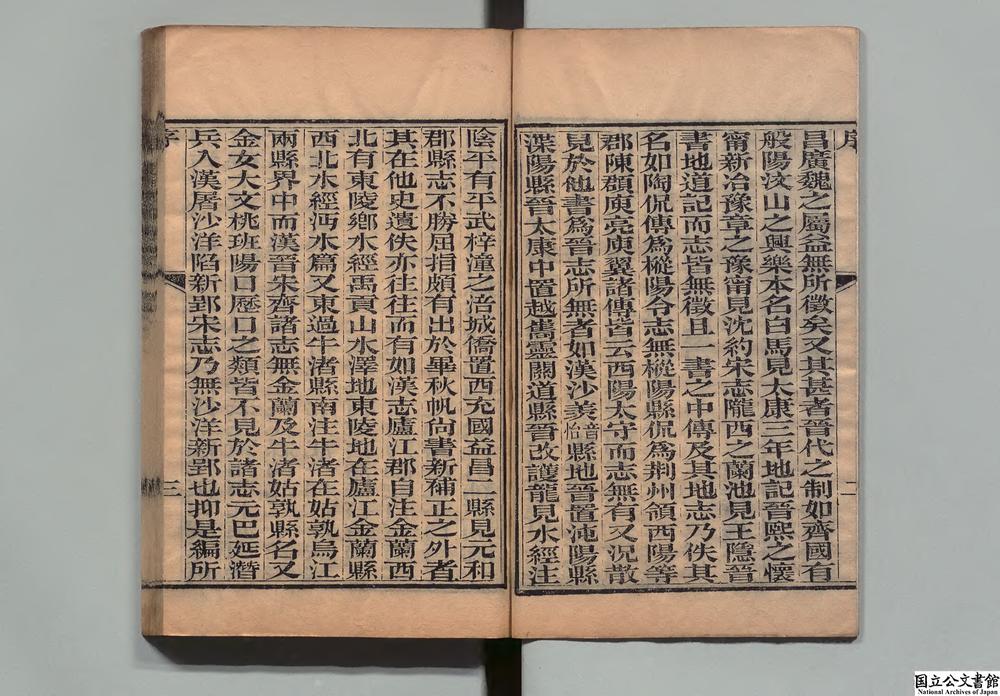 序
昌廣魏之屬益無所徵矣又其甚者晉代之制如齊國有
般陽汶山之興樂本名白馬見太康三年地記晉熙之懷
甯新冶豫章之豫甯見沈約宋志隴西之蘭池見王隱晉
書地道記而志皆無徵且一書之中傳及其地志乃佚其
名如陶侃傳爲樅陽令志無樅陽縣侃爲荆州領西陽等
郡陳頵庾亮庾翼諸傳皆云西陽太守而志無有又況散
見於他書爲晉志所無者如漢沙羨音怡縣地晉置沌陽縣
溧陽縣晉太康中置越巂靈關道縣晉改護龍見水經注
二
陰平有平武梓潼之涪城僑置西充國益昌二縣見元和
郡縣志不勝屈指頗有出於畢秋帆尙書新補正之外者
其在他史遺佚亦往往而有如漢志廬江郡自注金蘭西
北有東陵鄉水經禹貢山水澤地東陵地在廬江金蘭縣
西北水經沔水篇又東過牛渚縣南注牛渚在姑孰烏江
兩縣界中而漢晉宋齊諸志無金蘭及牛渚姑孰縣名又
金女大文桃班陽口歷口之類皆不見於諸志元巴延潛
兵入漢屠沙洋陷新郢宋志乃無沙洋新郢也抑是編所
序
三
国立公文書館
National Archives of Japan